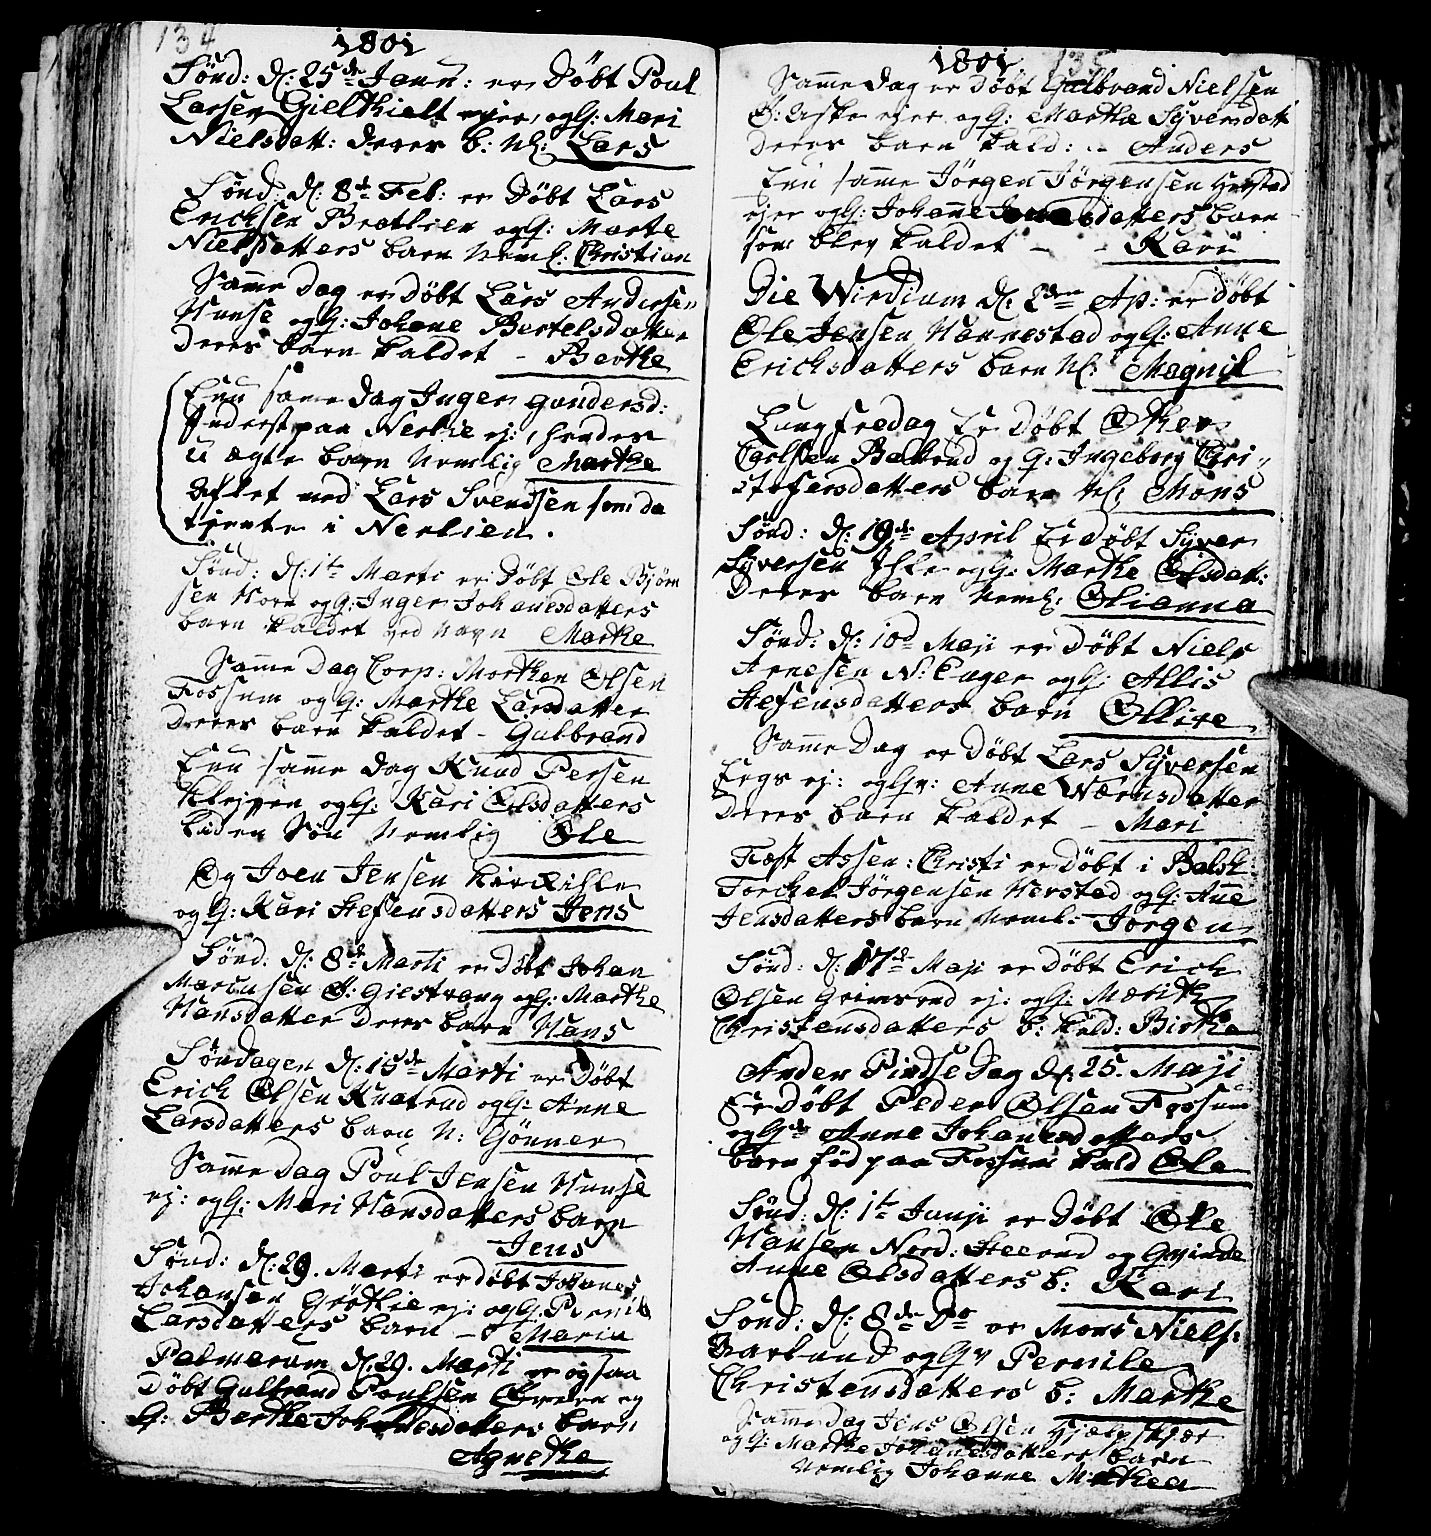 134
1801
Sönd: d: 25de Janu: er Döbt Poul
Larsen Gielthielt ejer, og G: Mari
Nielsdatt: deres b: Nl: Lars
Sönd: d: 8de Feb: er Döbt Lars
Erichsen Brotlien og G: Marte
Nielsdatters barn Neml: Christian
Samme Dag er Döbt Lars Andersen
Hunse og G: Johane Bertelsdatter
Deres barn kaldet - Berthe
Enu same Dag Inger gundersd:
Inderst paa Nerlie ej:, hendes
u ægte barn Nemlig Marthe
Aflet med Lars Svendsen som da
tjente i Nerlien.
Sönd: d: 1te Marti er Döbt Ole Björn
sen Horn og G: Inger Johanesdatters
barn kaldet ved Navn Marthe
Samme Dag Corp: Morthen Olsen
Fossum og G: Marthe Larsdatter
Deres barn kaldet - Gulbrand
Enu samme Dag Knud Persen
Klejven og G: Kari Olsdatters
liden Sön Nemlig Ole
Og Joen Jensen
og G: Kari Stefensdatters Jens
Sönd: d: 8de Marti er Döbt Johan
Marcusen Ö: Giestvang og G: Marthe
Hansdatter deres barn Hans
Söndagen d: 15de Marti er Döbt
Erich Olsen Knatrud og G: Anne
Larsdatters barn N: Gönner
Samme Dag Poul Jensen Hunse
ej: og G: Mari Hansdatters barn
Jens
Sönd: d: 29. Marti er döbt Johanes
Johansen Grötlie ej: og G: Pernil
Larsdatters barn - Maria
Palmarum d. 29. Marti er ogsaa
Döbt Gulbrand Poulsen Överen og
G: Berthe Johanesdatters barn
Agnethe
1801 135
Samme Dag er Döbt Gulbrand Nielsen
Ö: Aske ejer og G: Marthe Syversdatt
Deres barn kald: - Anders
Enu samme Jörgen Jörgensen
ejer og G: Johanne datters barn
som blev kaldet - - Kari
Die Viridium d. 2den Ap: er döbt
Ole Jensen Nannestad og G: Anne
Erichsdatters barn Nl: Magnil
Langfredag Er Döbt Other
Carlsen Balterud og G: Ingeborg Cri-
stofersdatters barn Nl: Mons
Sönd: d: 19de April Er Döbt Syver
Syversen Ihle og G: Marthe Olsdatt:
Deres barn Neml: Olianna
Sönd: d: 10d Maji er Döbt Niels
Arnesen N: Enger og G: Allis
Stefensdatters barn Ollive
Samme Dag er Döbt Lars Syversen
Ergs ej: og Gv: Anne Wærnsdatter
Deres barn kaldet - Mari
Fæst Assen: Christi er Döbt i Balsk:
Torchel Jörgensen Herstad og G: Ane
Jensdatters barn Neml: Jörgen
Sönd: d: 17de Maji er Döbt Erich
Olsen Grimsrud ej: og G: Marith
Christensdatters b: kald: Birthe
Anden Pindse Dag d: 25. Maji
Er Döbt Peder Olsen Fossum
og Gde Anne Johanesdatters
barn föd paa Fossum kald Ole
Sönd: d: 1te Junji er Döbt Ole
Hansen Nord: Steerud og Qvinde
Anne Olsdatters b: Kari
Sönd: d: 8de Do er Mons Niels:
Haslund og Gv Pernile
Christensdatters b: Marthe
Samme Dag Jens Olsen Hjælpskjær
og G: Marthe Johanesdatters barn
Nemlig Johanne Mathea